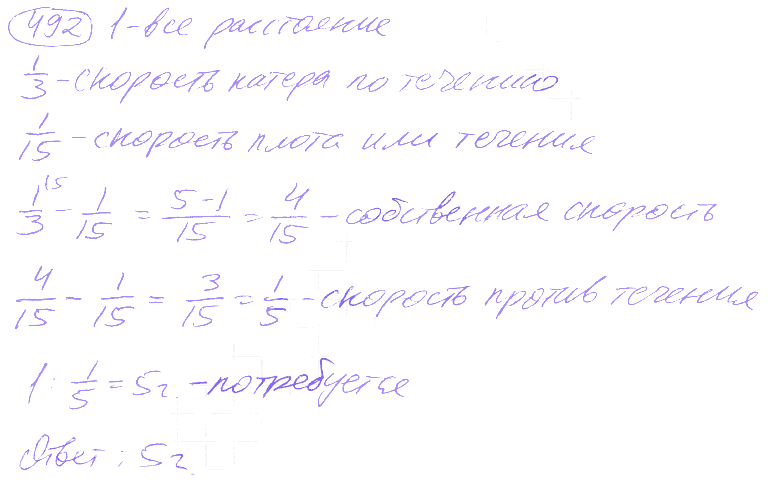 492 1-все расстояние
1/3 - скорость катера по течению
1/15 - скорость плота или течения
1/3 ^15 - 1/15 = 5-1/15 = 4/15 - собственная скорость
4/15 - 1/15 = 3/15 = 1/5 - скорость против течения
1 : 1/5 = 5г. - потребуется
Ответ : 5г.